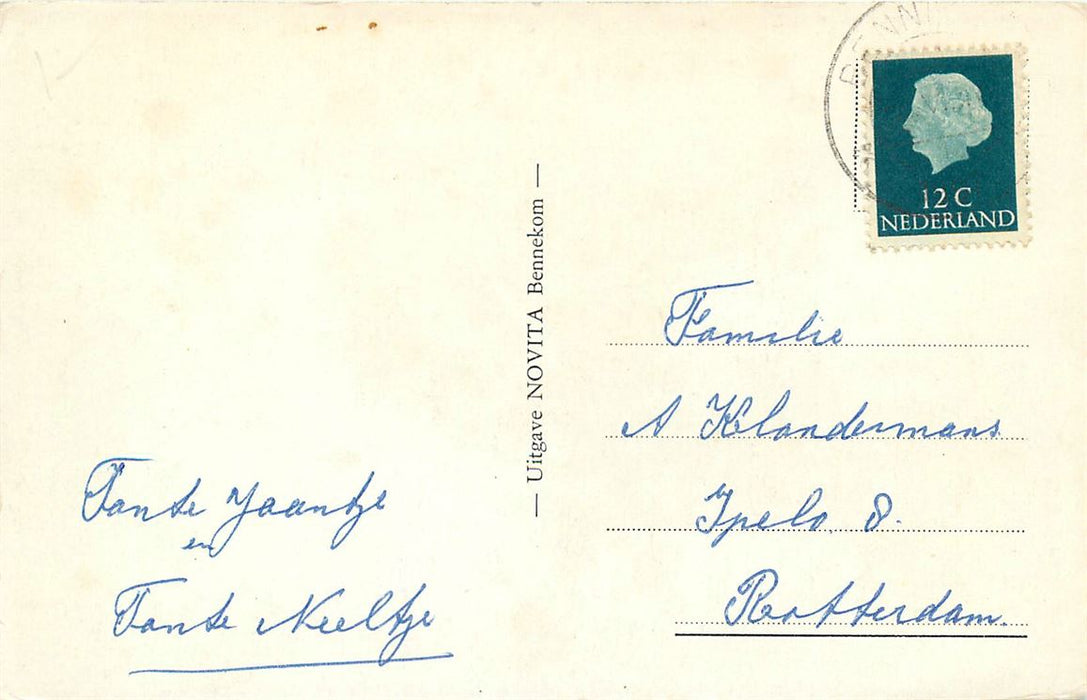 Tante Jaantje
en
Tante Neeltje
— Uitgave NOVITA Bennekom —
12 C
NEDERLAND
Familie
A Klandermans
Ipelo 8.
Rotterdam.